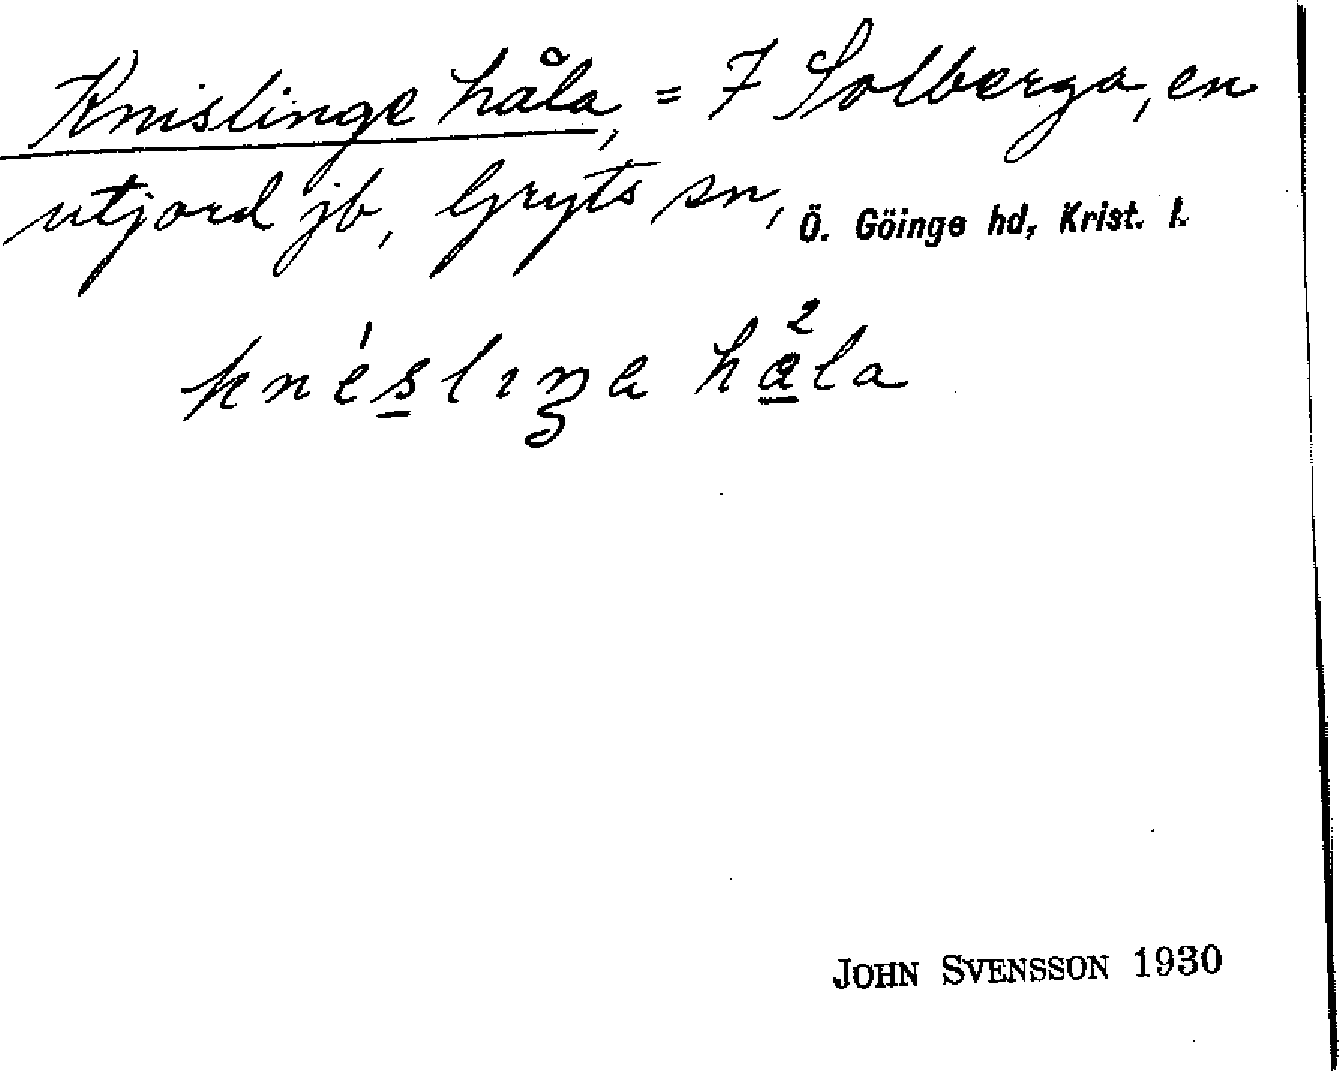 Knislinge håla, = 7 Solberga, en
utjord jb, Gryts sn, Ö. Göinge hd, Krist. l.
håla
JOHN SVENSSON 1930